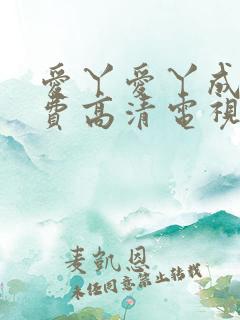 愛丫愛丫成
費高清電視
麦凱恩
未任同意禁止转载